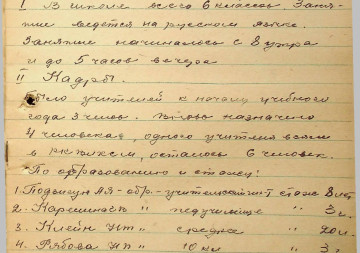 I В школе всего 6 классов. Заня-
тие ведется на русском языке.
Занятие начиналось с 8 утра
и до 5 часов вечера
II Кадры.
Было учителей к началу учебного
года 3 челов. назначено
4 человека, одного учителя взяли
в осталось 6 человек.
По образованию и стажу:
1. АЯ - обр. - стаж 8 лет
2. " педучилище " 3 г.
3. Клейн " средне " 20 л.
4. Рябова " 10 кл " 3 г.